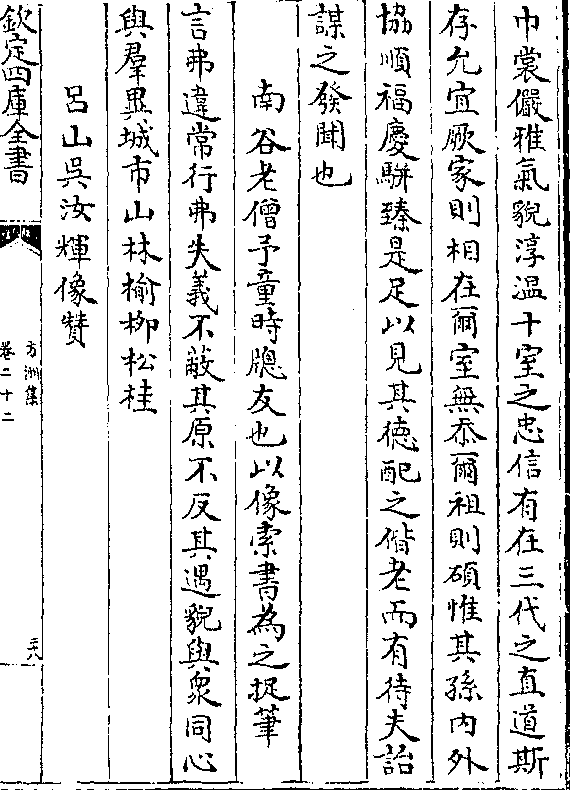 巾裳儼雅氣貌淳温十室之忠信有在三代之直道斯
存允宜厥家則相在爾室無忝爾祖則碩惟其孫内外
協順福慶駢臻是足以見其徳配之偕老而有待夫詒
謀之發聞也
南谷老僧予童時牕友也以像索書為之捉筆
言弗違常行弗失義不蔽其原不反其遇貌與衆同心
與羣異城市山林榆栁松桂
呂山吳汝輝像贊
欽定四庫全書
方洲集
卷二十二
二八